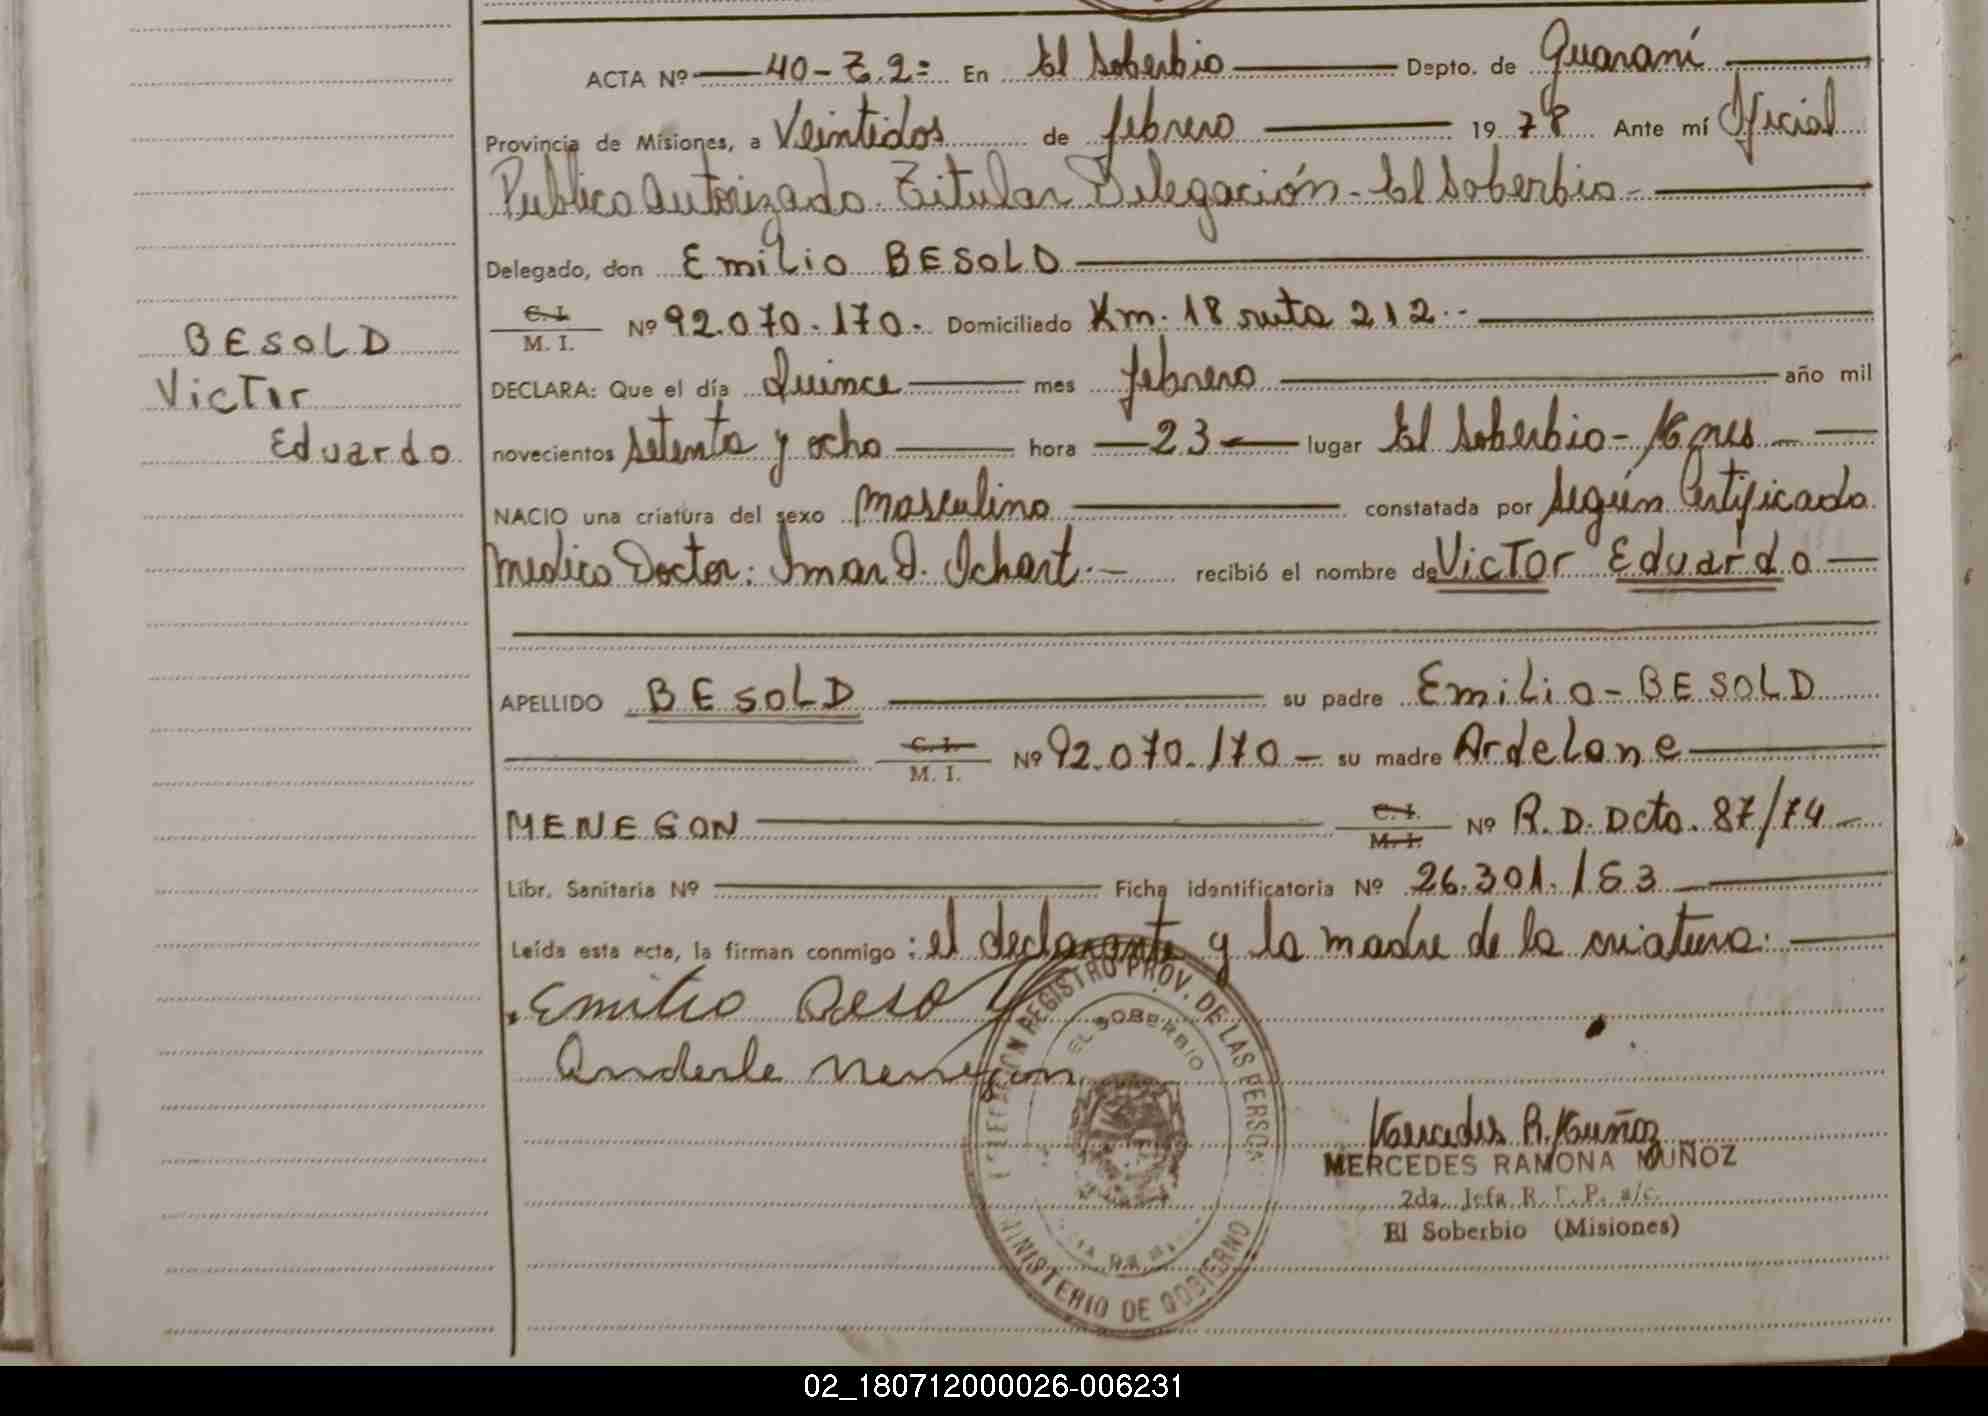 ACTA Nº 40-T.2= En El Soberbio Depto. de Guaraní
Provincia de Misiones, a Veintidos de febrero 1978 Ante mí Oficial
Publico Autorizado Titular Delegación - El Soberbio -
Delegado, don Emilio BESOLD
C.I. M.I. Nº 92.070.170. Domiciliado Km. 18 ruta 212.-
BESOLD
DECLARA: Que el día Quince mes febrero año mil
Victor
novecientos setenta y ocho hora 23 lugar El Soberbio - Mnes
Eduardo
NACIO una criatura del sexo masculino constatada por según Certificado
Medico Doctor: Imar D. Ichart.- recibió el nombre de Victor Eduardo
APELLIDO BESOLD su padre Emilio - BESOLD
C.I. M.I. Nº 92.070.170 - su madre Ardelone
MENEGON C.I. M.I. Nº R.D. Dcto. 87/74
Libr. Sanitaria Nº Ficha identificatoria Nº 26.301.153
Leída esta acta, la firman conmigo: el declarante y la madre de la criatura.
Emilio Besold
Anderle Menegon
REGISTRO PROV. DE LAS PERSONAS
EL SOBERBIO
MINISTERIO DE GOBIERNO
Mercedes R. Muñoz
MERCEDES RAMONA MUÑOZ
2da. Jefa R. P. P. a/c.
El Soberbio (Misiones)
02_180712000026-006231